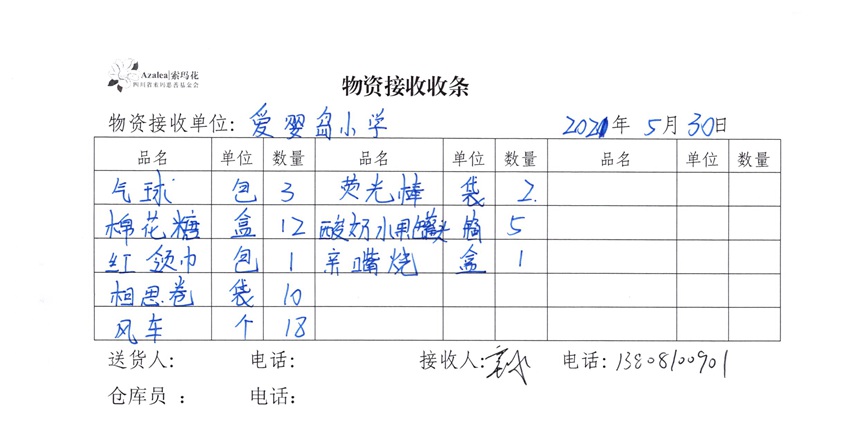 Azalea|索玛花
四川省索玛慈善基金会
物资接收收条
物资接收单位: 爱婴岛小学 2021年 5月 30日
品名 单位 数量 品名 单位 数量 品名 单位 数量
气球 包 3 荧光棒 袋 2.
棉花糖 盒 12 酸奶水果罐头 箱 5
红领巾 包 1 亲嘴烧 盒 1
相思卷 袋 10
风车 个 18
送货人: 电话: 接收人: 电话: 13808100901
仓库员 : 电话: